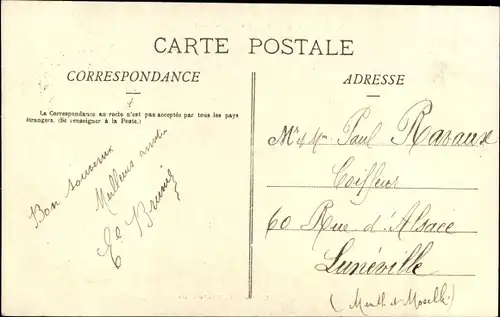 CARTE POSTALE
CORRESPONDANCE
La Correspondance au recto n'est pas acceptée par tous les pays
étrangers. (Se renseigner à la Poste.)
Bon souvenir
Meilleurs
ADRESSE
Mr & Mme Paul Ravaux
Coiffeur
60 Rue d'Alsace
Lunéville
(Meurth et Moselle)